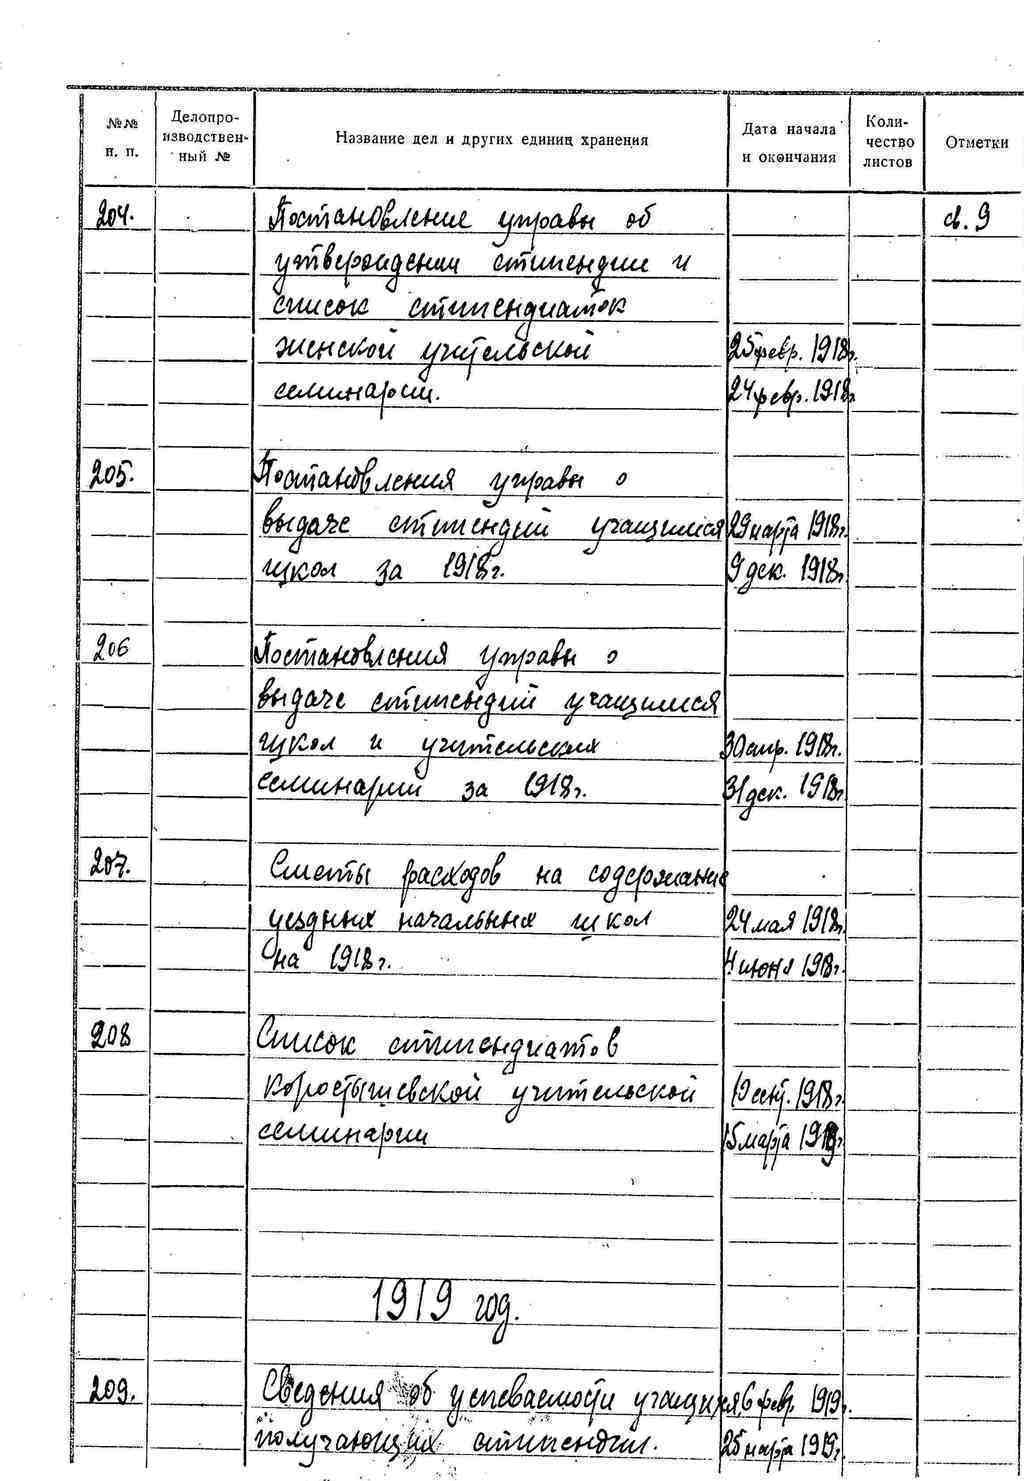 №№ п. п. Делопроизводственный № Название дел и других единиц хранения Дата начала и окончания Количество листов Отметки
204. Постановление управы об св. 9
утверждении стипендии и
список стипендиаток
женской учительской 25 февр. 1918г.
семинарии. 24 февр. 1918г
205. Постановления управы о
выдаче стипендий учащимся 29 марта 1918г.
школ за 1918г. 9 дек. 1918г
206 Постановления управы о
выдаче стипендий учащимся
школ и учительских 30 апр. 1918г.
семинарий за 1918г. 31 дек. 1918г.
207. Сметы расходов на содержание
уездных начальных школ 24 мая 1918г.
на 1918г. 4 июня 1918г.
208 Список стипендиатов
Коростышевской учительской сент. 1918г.
семинарии 15 марта 1919г.
1919 год.
209. Сведения об успеваемости учащихся, 6 февр. 1919г.
получающих стипендии. 25 марта 1919г.